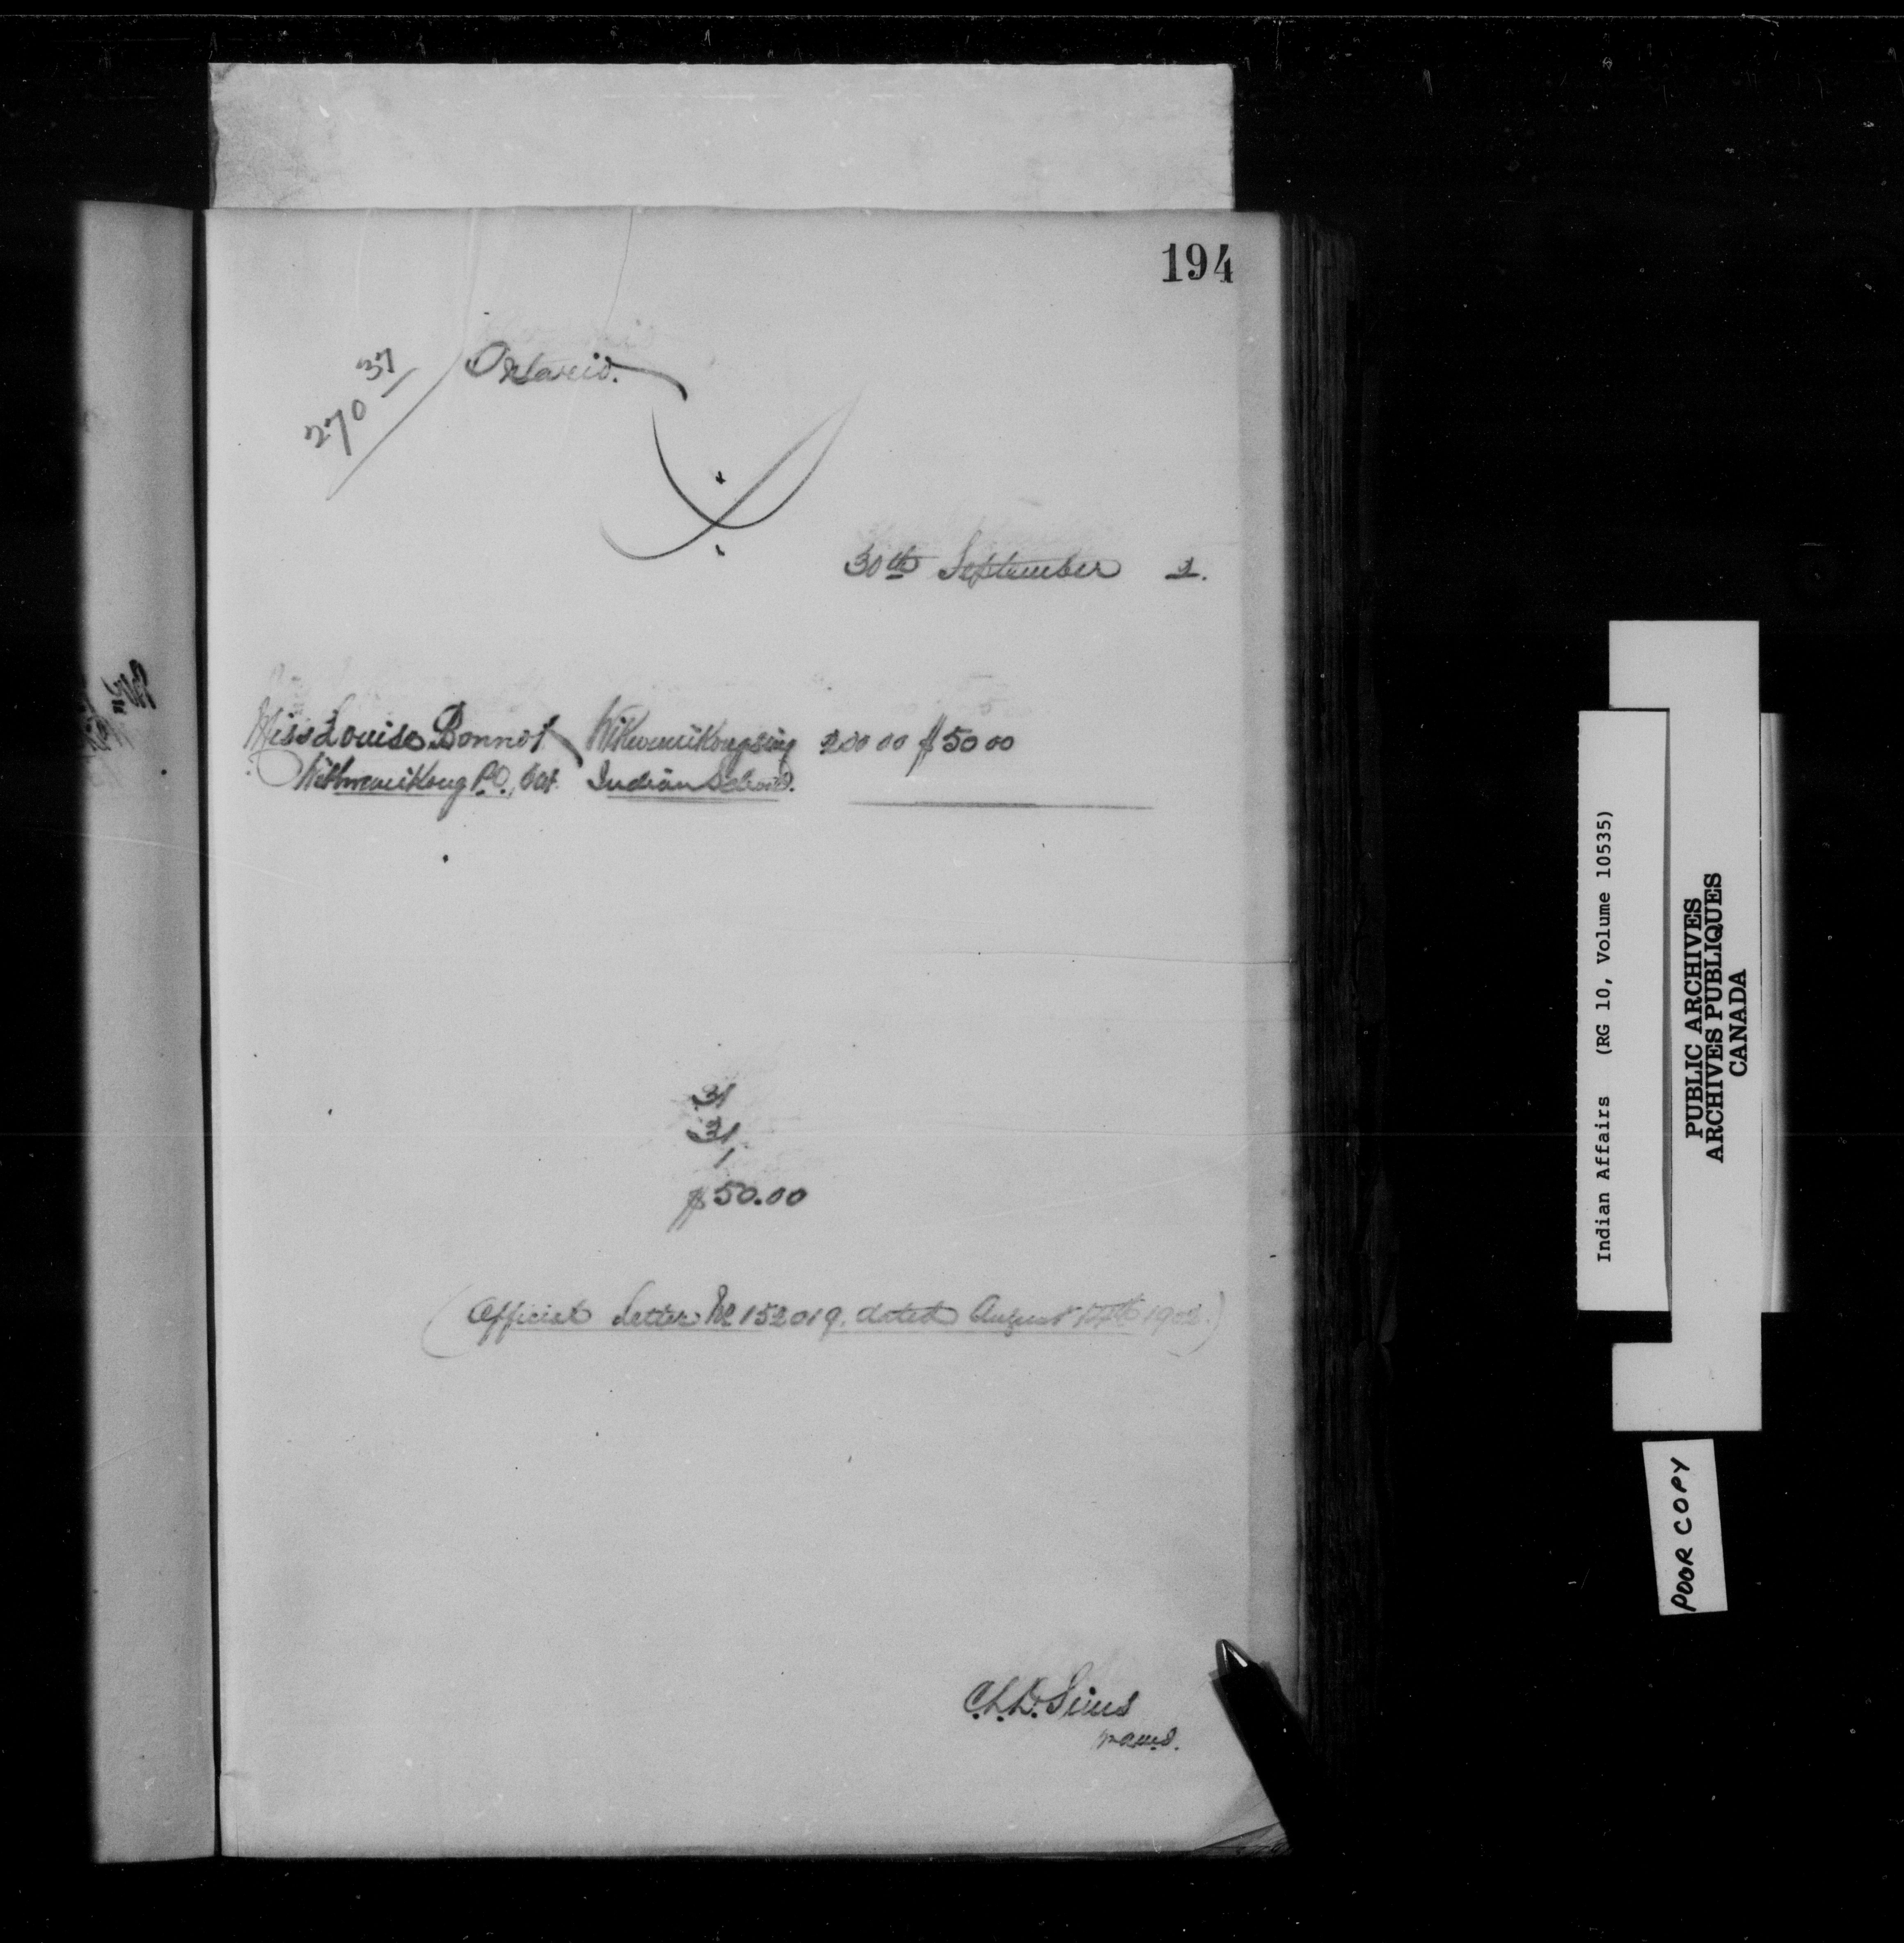 194
270 37
Ontario.
30th September 2.
Miss Louise Bonnot Wikwemikongsing 200 00 $50 00
Wikwemikong P.O., Ont. Indian School.
31
31
1
$50.00
(Official Letter No 152019, dated August 1902.)
C.L.D. Sims
Indian Affairs (RG 10, Volume 10535)
PUBLIC ARCHIVES
ARCHIVES PUBLIQUES
CANADA
POOR COPY